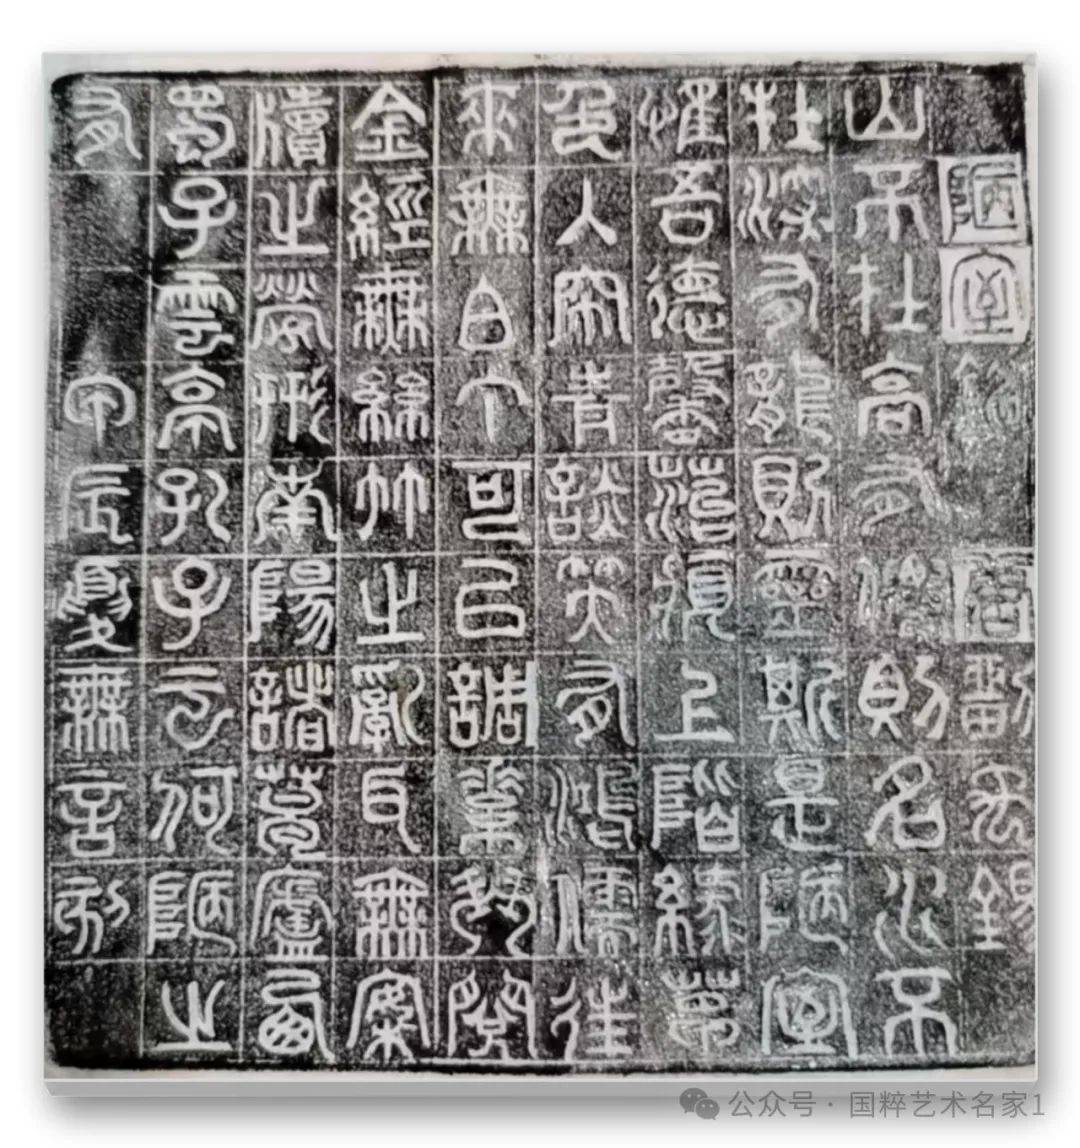 陋室銘 唐劉禹錫
山不在高有僊則名水不
在深有龍則靈斯是陋室
惟吾德馨苔痕上階綠草
色入簾青談笑有鴻儒往
來無白丁可以調素琴閱
金經無絲竹之亂耳無案
牘之勞形南陽諸葛廬西
蜀子雲亭孔子云何陋之
有 甲辰夏無言刻
公众号 · 国粹艺术名家1